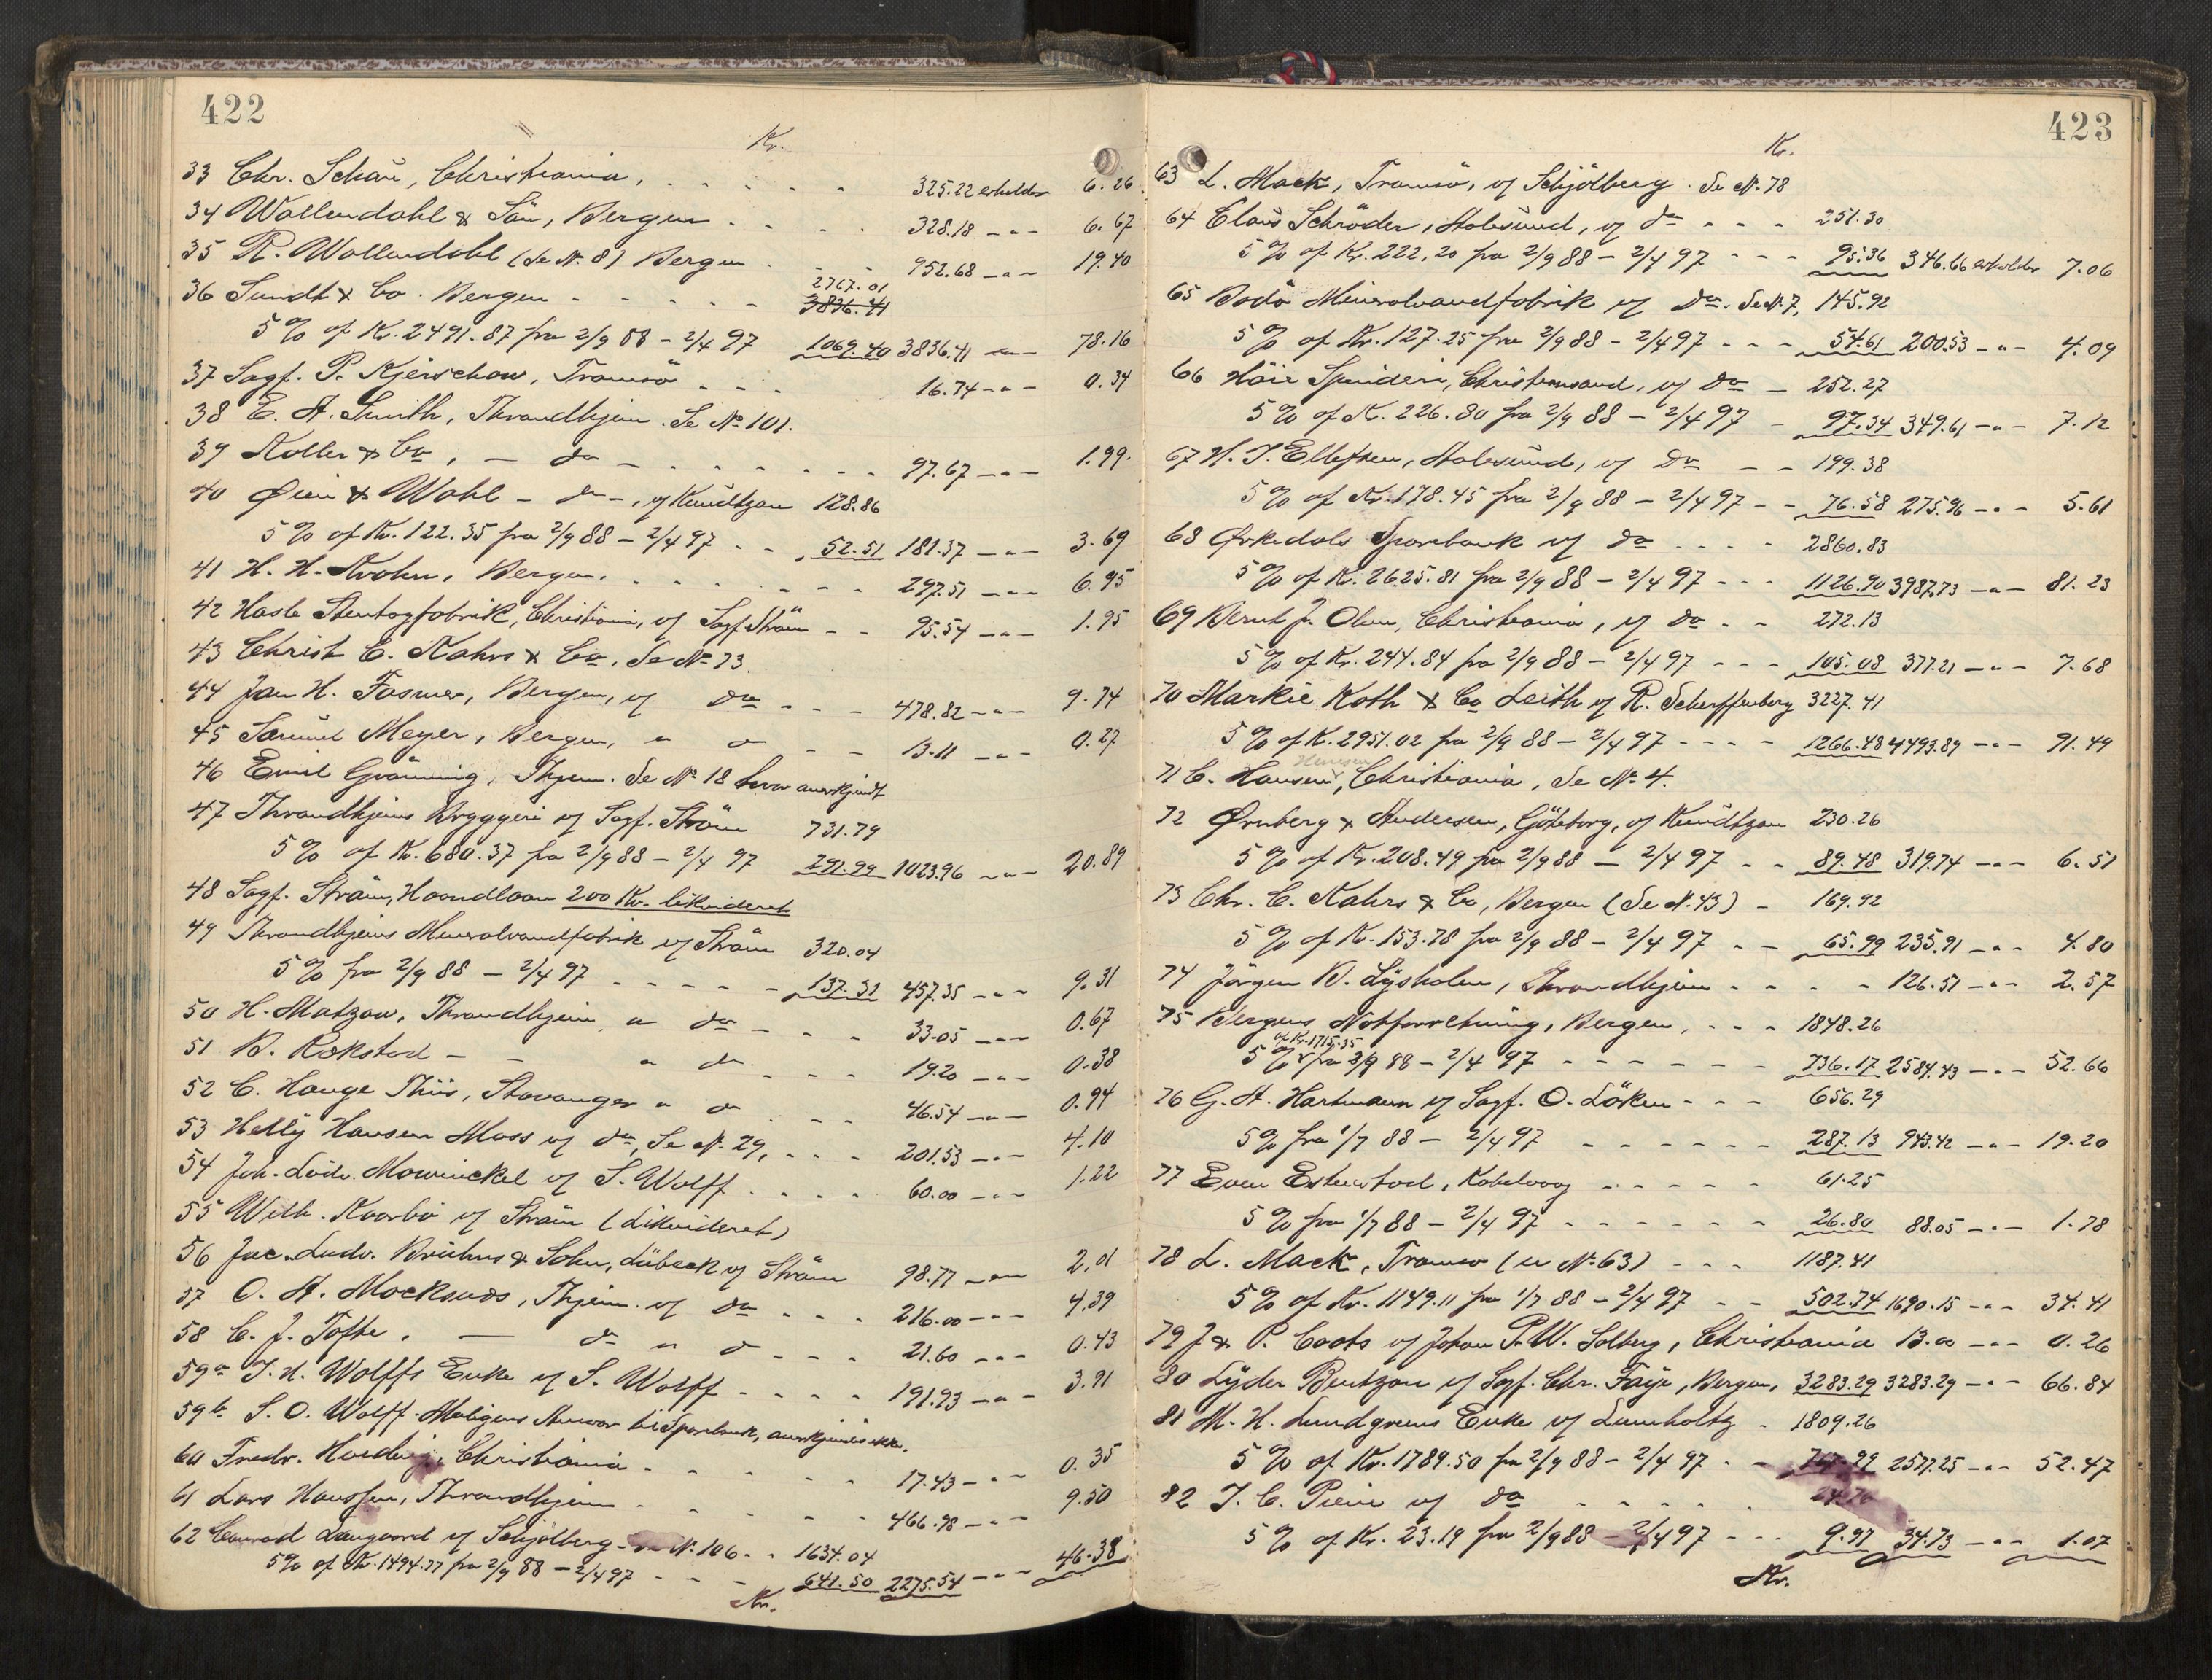 422
Kr.
33 Chr. Schou, Christiania, 325.22 erholder 6.26
34 Wollendahl & Sön, Bergen 328.18 -"- 6.67
35 R. Wollendahl (Se No. 8) Bergen 952.68 -"- 19.40
36 Sundt & Co. Bergen 2767.01 3836.41
5% af Kr. 2491.87 fra 2/9 88 - 2/4 97 1069.40 3836.41 -"- 78.16
37 Sagf. P. Kjerschow, Tromsö 16.74 -"- 0.34
38 E. A. Smith, Throndhjem. Se No 101.
39 Koller & Co, - do - 97.67 -"- 1.99.
40 Øien & Wahl - do -, v/ Knudtzon 128.86
5% af Kr. 122.35 fra 2/9 88 - 2/4 97 52.51 181.37 -"- 3.69
41 H. H. Krohn, Bergen. 297.51 -"- 6.95
42 Hasle Stentøifabrik, Christiania, v/ Sagf. Ström 95.54 -"- 1.95
43 Christ C. Kahrs & Co, Se No 73.
44 Jan H. Fasmer, Bergen, v/ do 478.82 -"- 9.74
45 Samuel Meyer, Bergen, " do 13.11 -"- 0.27
46 Emil Grönning, Thjem. Se No 18 hvor anerkjendt
47 Throndhjems Bryggeri v/ Sagf. Ström 731.79
5% af Kr. 680.37 fra 2/9 88 - 2/4 97 292.29 1023.96 -"- 20.89
48 Sagf. Ström, Haandlaan 200 Kr. likvideret
49 Throndhjems Mineralvandfabrik v/ Ström 320.04
5% fra 2/9 88 - 2/4 97 137.31 457.35 -"- 9.31
50 H. Matzow, Throndhjem " do 33.05 -"- 0.67
51 B. Rækstad - " do 19.20 -"- 0.38
52 C. Hauge Thiis, Stavanger " do 46.54 -"- 0.94
53 Helly Hansen Moss v/ do, Se No. 29, 201.53 -"- 4.10
54 Joh. Ludv. Mowinckel v/ S. Wolff 60.00 -"- 1.22
55 Wilh. Kaarbö v/ Ström (Likvideret)
56 Jac. Ludv. Bruhns & Sohn, Lübeck v/ Ström 98.77 -"- 2.01
57 O. A. Moksnæs, Thjem. v/ do 216.00 -"- 4.39
58 C. J. Tofte. - do " do 21.60 -"- 0.43
59a J. N. Wolffs Enke v/ S. Wolff 191.93 -"- 3.91
59b S. O. Wolff. Muligens Ansvar til Sparebank, anerkjendes ikke.
60 Fredr. Hoedwig, Christiania 17.43 -"- 0.35
61 Lars Hanssen, Throndhjem 466.98 -"- 9.50
62 Conrad Langaard v/ Schjölberg - Se No. 106 1634.04
5% af Kr. 1494.77 fra 2/9 88 - 2/4 97 641.50 2275.54 -"- 46.38
Kr.
423
Kr.
63 L. Mack, Tromsö, v/ Schjölberg. Se No. 78
64 Claus Schröder, Aalesund, v/ do 251.30
5% af Kr. 222,20 fra 2/9 88 - 2/4 97 95.36 346.66 erholder 7.06
65 Bodö Mineralvandfabrik v/ do. Se No. 7, 145.92
5% af Kr. 127.25 fra 2/9 88 - 2/4 97 54.61 200.53 -"- 4.09
66 Höie Spinderi, Christiansand, v/ do - 252.27
5% af Kr. 226.80 fra 2/9 88 - 2/4 97 97.34 349.61 -"- 7.12
67 H. J. Ellefsen, Aalesund, v/ do 199.38
5% af Kr. 178.45 fra 2/9 88 - 2/4 97 76.58 275.96 -"- 5.61
68 Ørkedals Sparebank v/ do 2860.83
5% af Kr. 2625.81 fra 2/9 88 - 2/4 97 1126.90 3987.73 -"- 81.23
69 Bernt J. Olsen, Christiania, v/ do 272.13
5% af Kr. 244.84 fra 2/9 88 - 2/4 97 105.08 377.21 -"- 7.68
70 Markie Koth & Co Leith v/ R. Scherffenberg 3227.41
5% af Kr. 2951.02 fra 2/9 88 - 2/4 97 1266.48 4493.89 -"- 91.49
71 C. Hansen, Christiania, Se No. 4.
72 Ørnberg & Andersen, Göteborg, v/ Knudtzon 230.26
5% af Kr. 208.49 fra 2/9 88 - 2/4 97 89.48 319.74 -"- 6.51
73 Chr. C. Kahrs & Co, Bergen (Se No. 43) - 169.92
5% af Kr. 153.78 fra 2/9 88 - 2/4 97 65.99 235.91 -"- 4.80
74 Jörgen B. Lysholm, Throndhjem 126.51 -"- 2.57
75 Bergens Notforretning, Bergen, 1848.26
af Kr. 1715.35
5% fra 3/9 88 - 2/4 97 736.17 2584.43 -"- 52.66
76 G. A. Hartmann v/ Sagf. O. Löken 656.29
5% fra 1/7 88 - 2/4 97 287.13 943.42 -"- 19.20
77 Even Estenstad, Kabelvaag 61.25
5% fra 1/7 88 - 2/4 97 26.80 88.05 -"- 1.78
78 L. Mack, Tromsö (se No. 63) 1187.41
5% af Kr. 1149.11 fra 1/7 88 - 2/4 97 502.74 1690.15 -"- 34.41
79 J & P. Coats v/ Johan P. W. Solberg, Christiania 13.00 -"- 0.26
80 Lyder Bentzon v/ Sagf. Chr. Faye, Bergen, 3283.29 3283.29 -"- 66.84
81 M. H. Lundgreens Enke v/ Lumholtz - 1809.26
5% af Kr. 1789.50 fra 2/9 88 - 2/4 97 2577.25 -"- 52.47
82 J. C. Piene v/ do 24.76
5% af Kr. 23.19 fra 2/9 88 - 2/4 97 9.97 34.73 -"- 1.07
Kr.